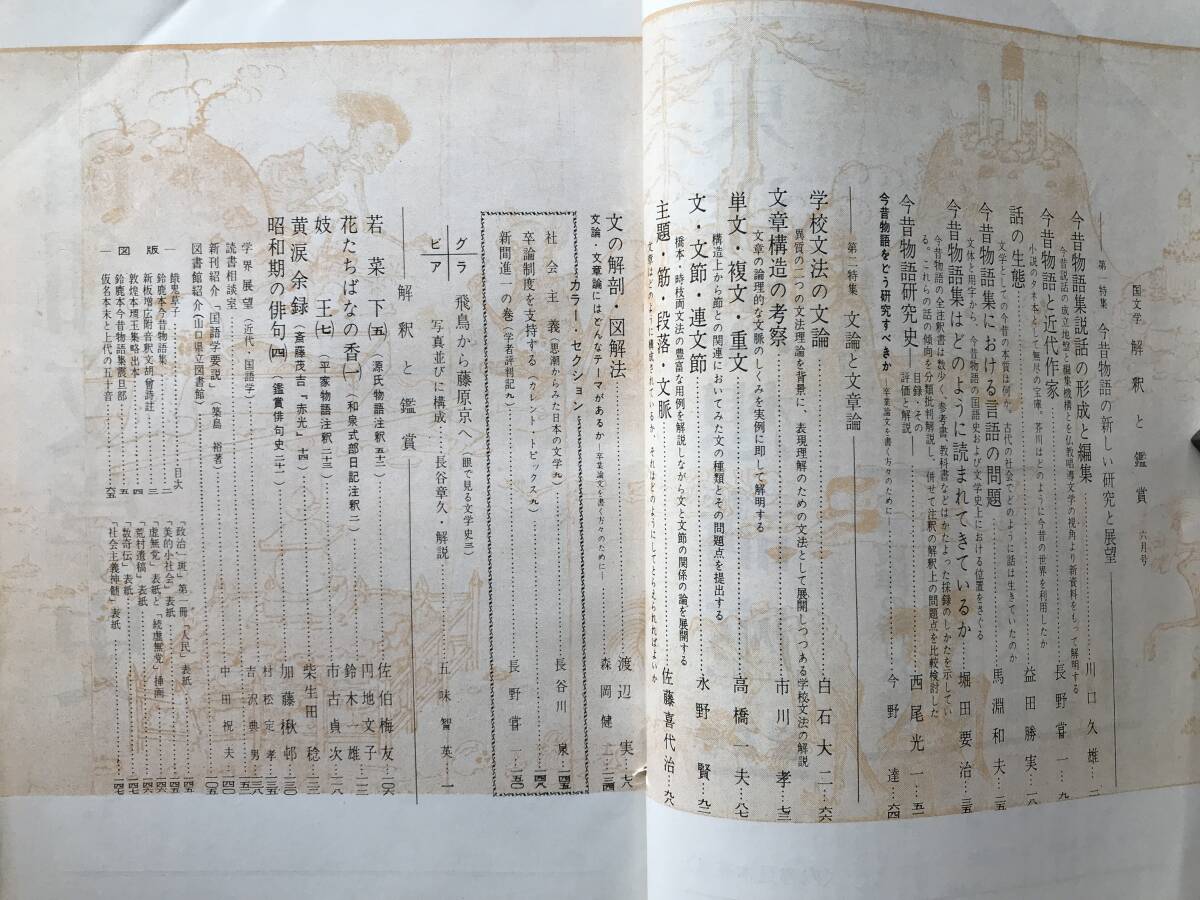 国文学 解釈と鑑賞 六月号
第一特集 今昔物語の新しい研究と展望
今昔物語集説話の形成と編集……川口久雄…
今昔説話の成立地盤と編集機構とを仏教唱導文学の視角より新資料をもって解明する
今昔物語と近代作家……長野甞一…
小説のタネ本として無尽の宝庫。芥川はどのように今昔の世界を利用したか
話の生態……益田勝実…一八
文学としての今昔の本質は何か。古代の社会でどのように話は生きていたのか
今昔物語集における言語の問題……馬淵和夫…二五
文体と用字から、今昔物語の国語史および文学史上における位置をさぐる
今昔物語集はどのように読まれてきているか……堀田要治…三五
今昔物語の全注釈書は数少く、参考書、教科書などはかたよった採録のしかたを示している。これらの話の傾向を分類批判解説し、併せて注釈の解釈上の問題点を比較検討した
今昔物語研究史――目録・その評価と解説……西尾光一…五一
今昔物語をどう研究すべきか――卒業論文を書く方々のために――……今野達…六四
第二特集 文論と文章論
学校文法の文論……白石大二…
異質の二つの文法理論を背景に、表現理解のための文法として展開しつつある学校文法の解説
文章構造の考察……市川孝…七三
文章の論理的な文脈のしくみを実例に即して解明する
単文・複文・重文……高橋一夫…八七
構造上から節との関連においてみた文の種類とその問題点を提出する
文・文節・連文節……永野賢…九二
橋本・時枝両文法の豊富な用例を解説しながら文と文節の関係の論を展開する
主題・筋・段落・文脈……佐藤喜代治…九八
文章はどのように構成されているか、それはどのようにしてとらえられればよいか
文の解剖・図解法……渡辺実…七八
文論・文章論にはどんなテーマがあるか――卒業論文を書く方々のために――……森岡健二…
カラー・セクション
社会主義(思潮からみた日本の文学九)……長谷川泉…一四五
卒論制度を支持する(カレント・トピックス九)……一四八
新間進一の巻(学者評判記九)……長野甞一…一五〇
グラビア 飛鳥から藤原京へ(眼で見る文学史三)
写真並びに構成……長谷章久・解説……五味智英…一
解釈と鑑賞
若菜下(五)(源氏物語注釈五十一)……佐伯梅友…一〇六
花たちばなの香(一)(和泉式部日記注釈二)……円地文子 鈴木一雄…
妓王(七)(平家物語注釈二十三)……市古貞次…
黄涙余録(斎藤茂吉『赤光』十四)……柴生田稔…
昭和期の俳句(四)(鑑賞俳句史二十)……加藤楸邨…一三〇
学界展望(近代、国語学)……村松定孝 吉沢典男…
読書相談室……五三
新刊紹介「国語学要説」(築島裕著)……中田祝夫…一四〇
図書館紹介(山口県立図書館)……一〇五
図版
餓鬼草子……目次
鈴鹿本今昔物語集……二
新板増広附音釈文胡曽詩註……三
敦煌本瑻王集略出本……四
鈴鹿本今昔物語集震旦部……五
仮名本末と上代の五十音……六五
「政治一斑」第一冊「人民」表紙……一四五
「美的小社会」表紙……一四五
「虚無党」表紙と「続虚無党」挿画……一四六
「荒村遺稿」表紙……一四六
「数奇伝」表紙……一四七
「社会主義神髄」表紙……一四七